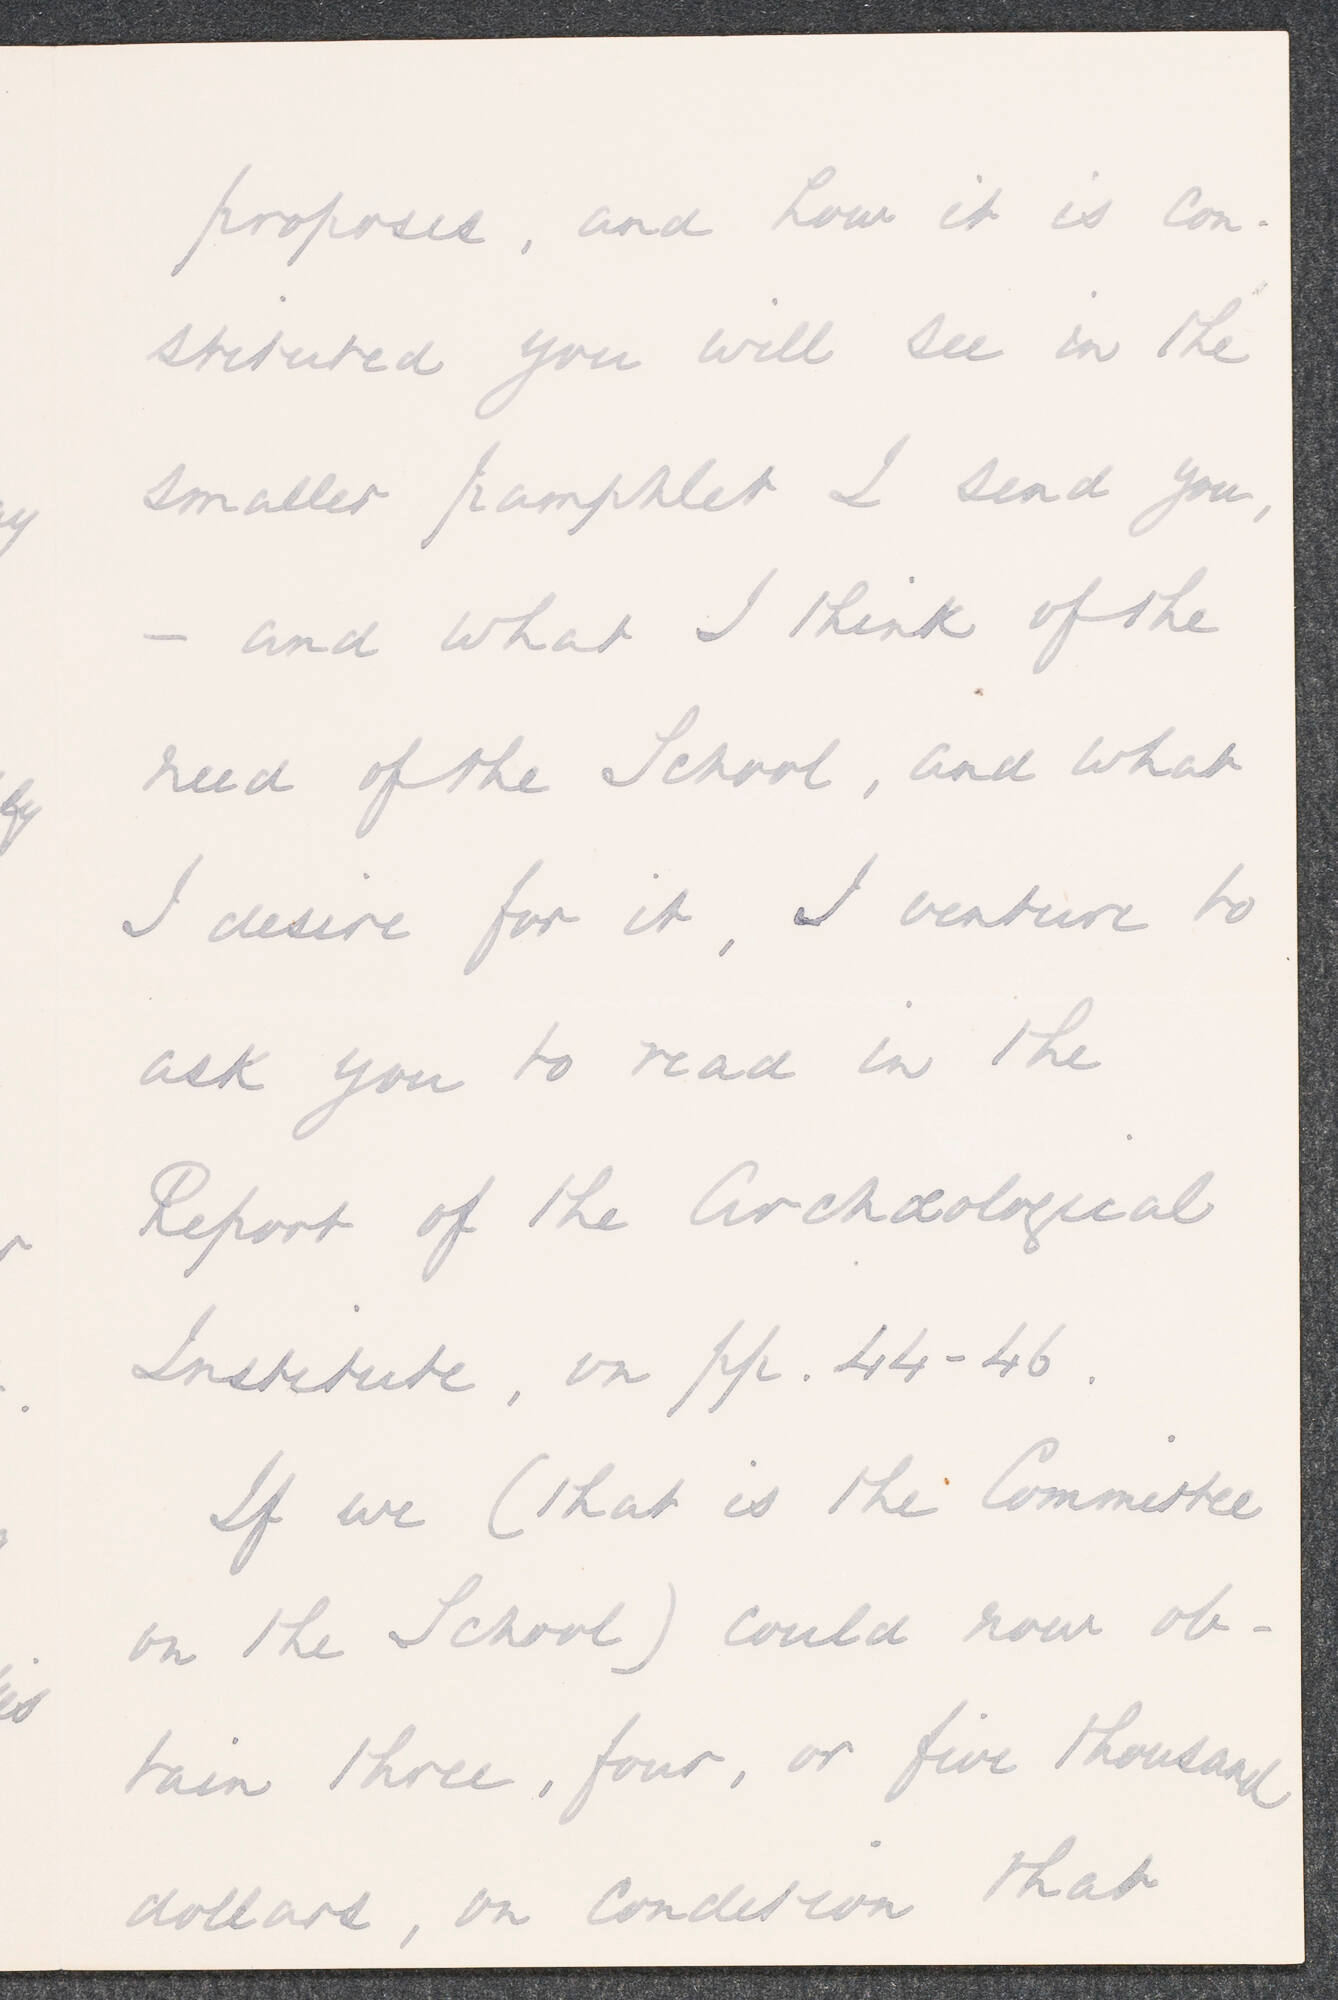 proposes, and how it is con-
stituted you will see in the
smaller pamphlet I send you,
— and what I think of the
need of the School, and what
I desire for it, I venture to
ask you to read in the
Report of the Archæological
Institute, on pp. 44-46.
If we (that is the Committee
on the School) could now ob-
tain three, four, or five thousand
dollars, on condition that